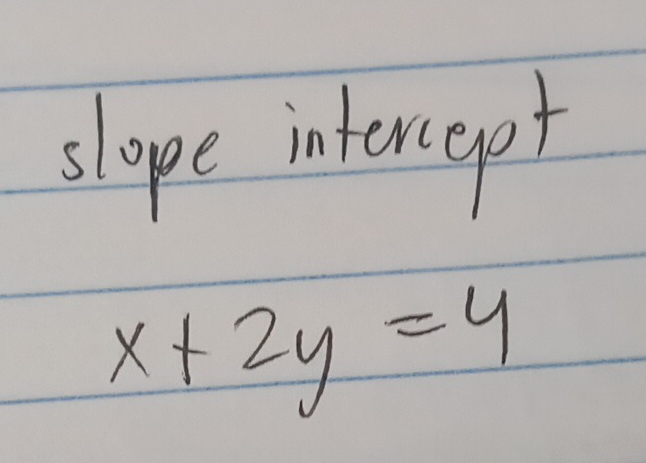 slope intercept
x + 2y = 4